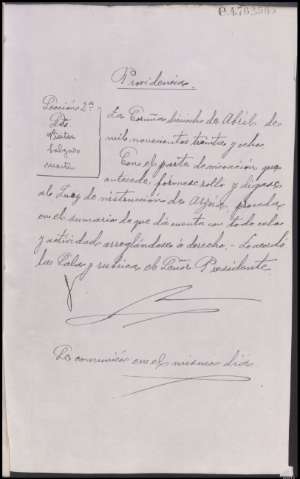 Providencia.
Sección 2ª
La Coruña de Abril de
mil novecientos treinta y ocho
Con el parte de incoación que
antecede, fórmese rollo y dígase
al Juez de instrucción de proceda
en el sumario de que dá cuenta con todo celo
y actividad arreglándose a derecho.- Lo acordó
la Sala y rubrica el Señor Presidente
Se comunicó en el mismo día